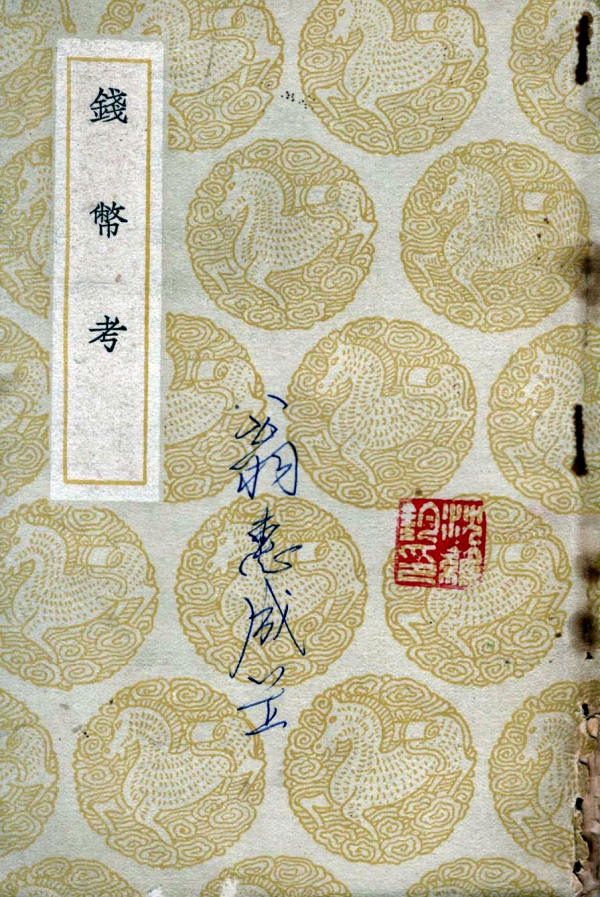 錢幣考
翁惠成